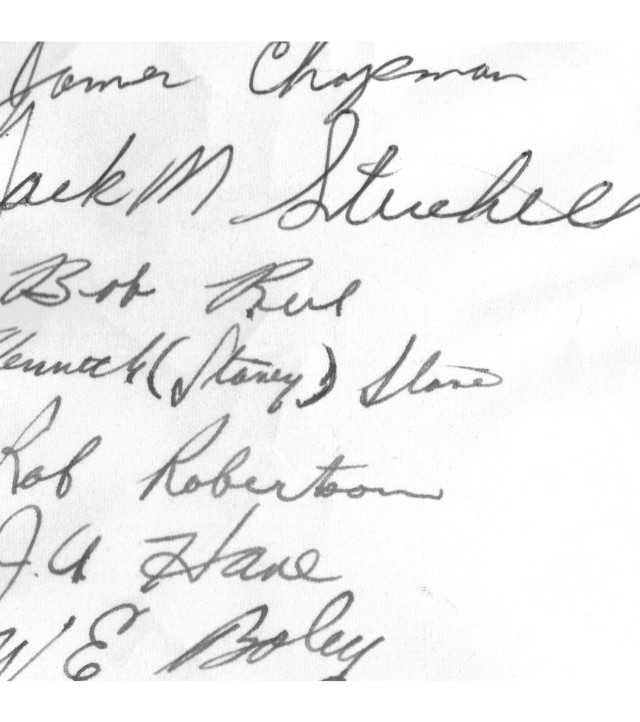 James Chapman
Jack M
Bob
Kenneth (Stoney) Stone
Rob Robertson
J. A Hane
W E Boley